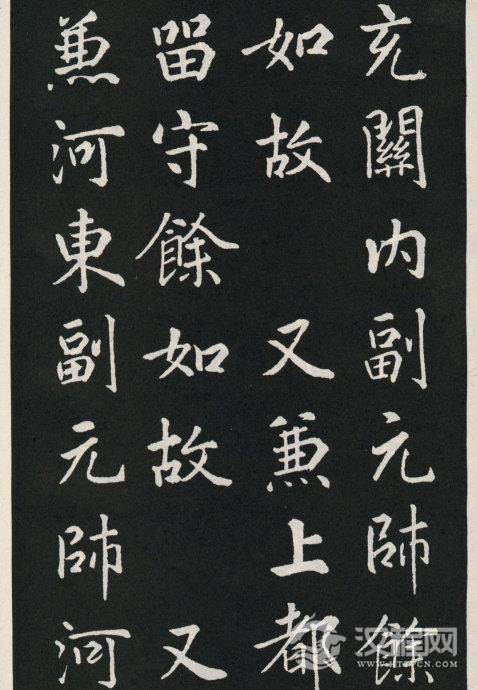 充關內副元帥餘
如故 又兼上都
留守餘如故 又
兼河東副元帥河
汉程网
WWW.HTTPCN.COM